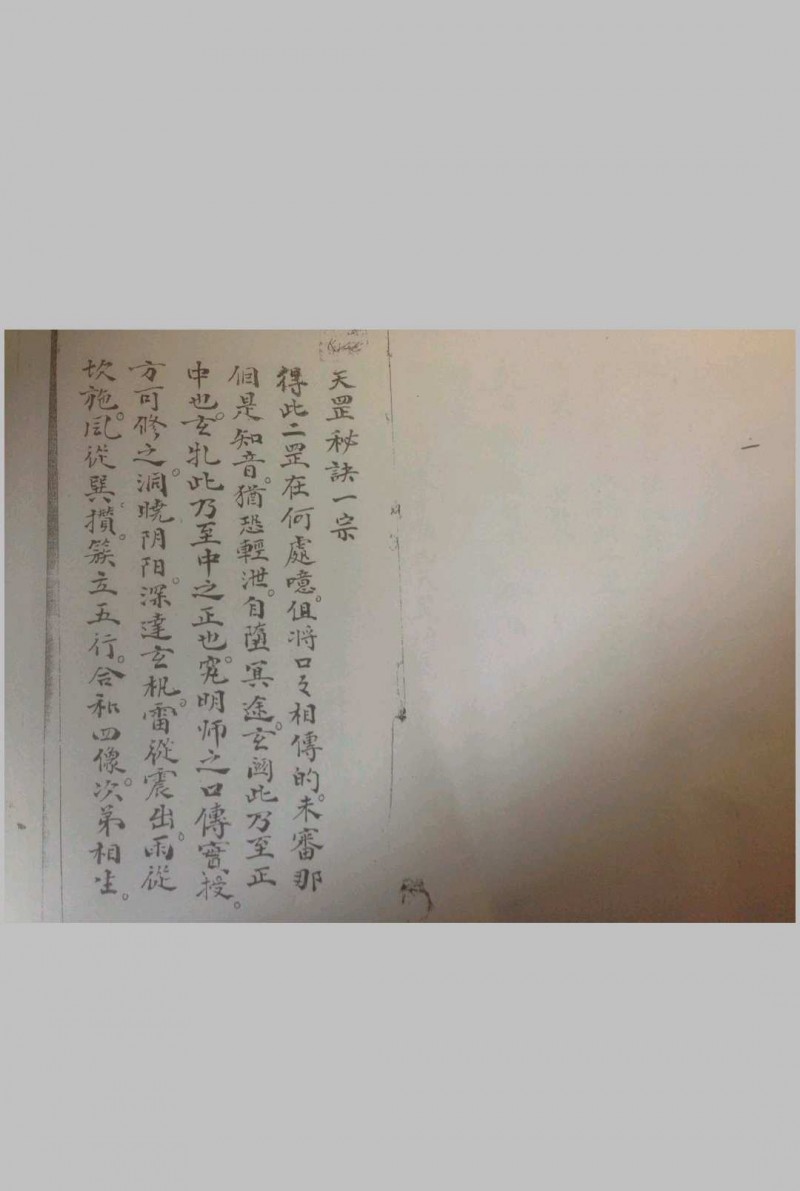 天罡秘訣一宗
得此二罡在何處噫。但將口々相傳的。未審那
個是知音。猶恐輕泄。自墮冥途。玄関此乃至正
中也。玄牝此乃至中之正也。究明师之口傳實授。
方可修之。洞曉阴阳。深達玄机。雷從震出。雨從
坎施。风從巽攢。簇立五行。合和四像。次弟相生。